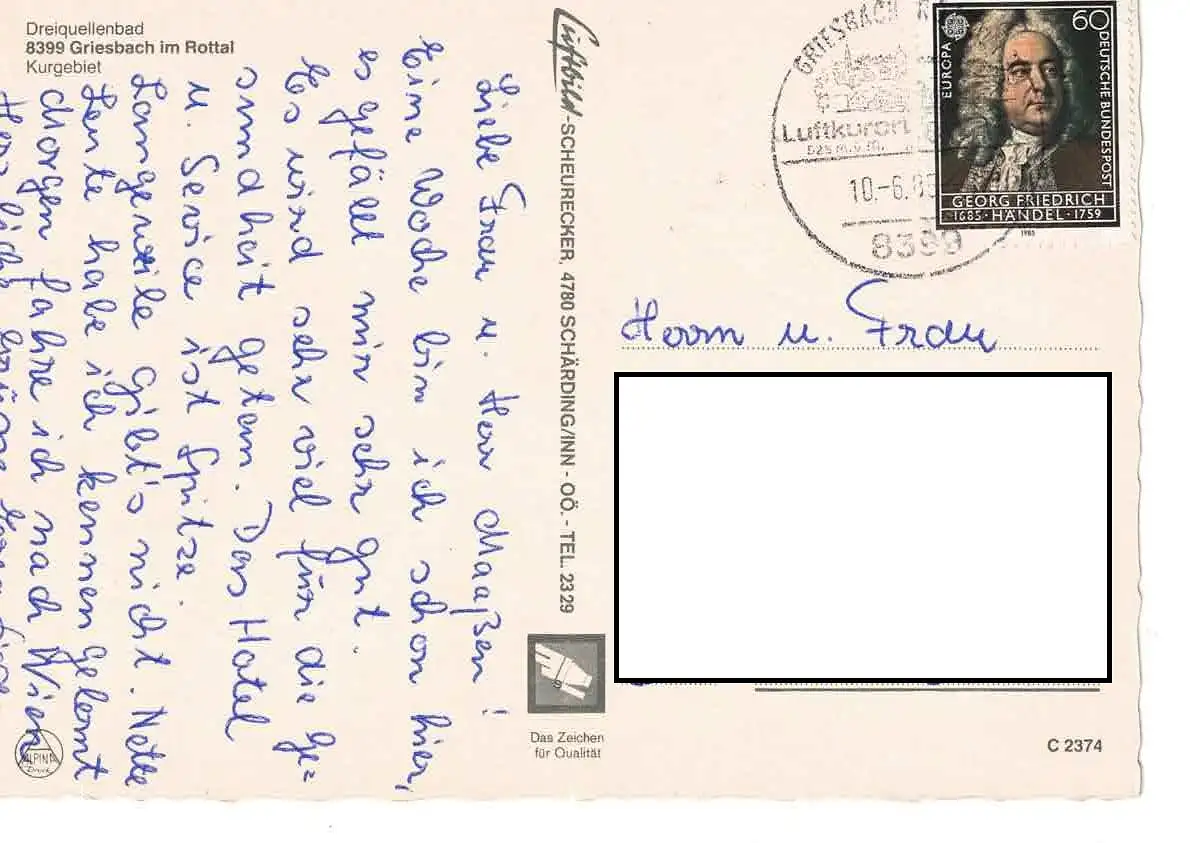 Dreiquellenbad
8399 Griesbach im Rottal
Kurgebiet
Liebe Frau u. Herr Maaßen!
Eine Woche bin ich schon hier,
es gefällt mir sehr gut.
Es wird sehr viel für die Ge=
sundheit getan. Das Hotel
u. Service ist Spitze.
Langeweile gibt's nicht. Nette
Leute habe ich kennen gelernt
Morgen fahre ich nach Wien
Luftbild-SCHEURECKER, 4780 SCHÄRDING/INN - OÖ. - TEL. 23 29
Das Zeichen
für Qualität
ALPINA
Druck
GRIESBACH
Luftkurort
525 m.ü.M.
10.-6.85
8399
EUROPA
60
DEUTSCHE BUNDESPOST
GEORG FRIEDRICH
1685 · HÄNDEL · 1759
1985
Herrn u. Frau
C 2374